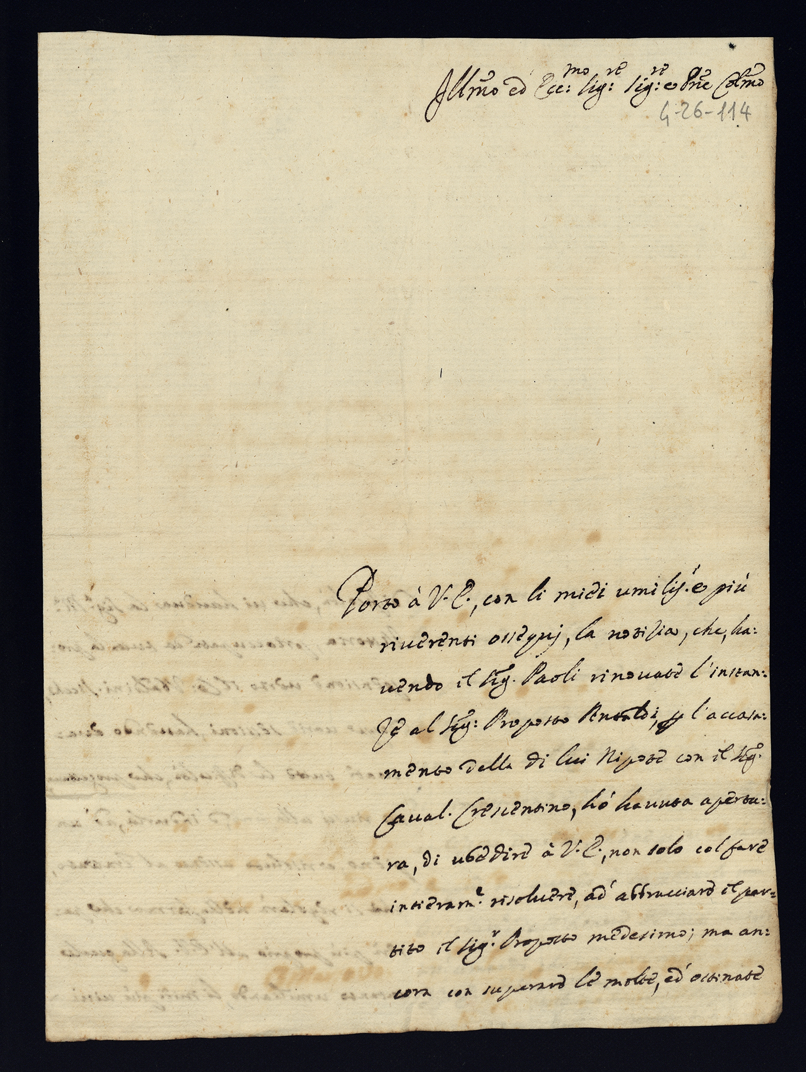 Illmo ed Ecc:mo Sig:re Sig:re e Pne Colmo
4-26-114
Porto à V. E., con li miei umiliss.i e più
riverenti ossequj, la notitia, che, ha:
vendo il Sig. Paoli rinovate l'instan:
ze al Sig: Proposto Rinaldi, p l'accasa:
mento della di lui Nipote con il Sig.
Caval. Crescentino, hó havuta apertu:
ra, di ubedire à V. E., non solo col fare
interam.e risolvere, ad' abbracciare il par:
tito il Sig.r Proposto medesimo; ma an:
cora con superare le molte, ed' ostinate